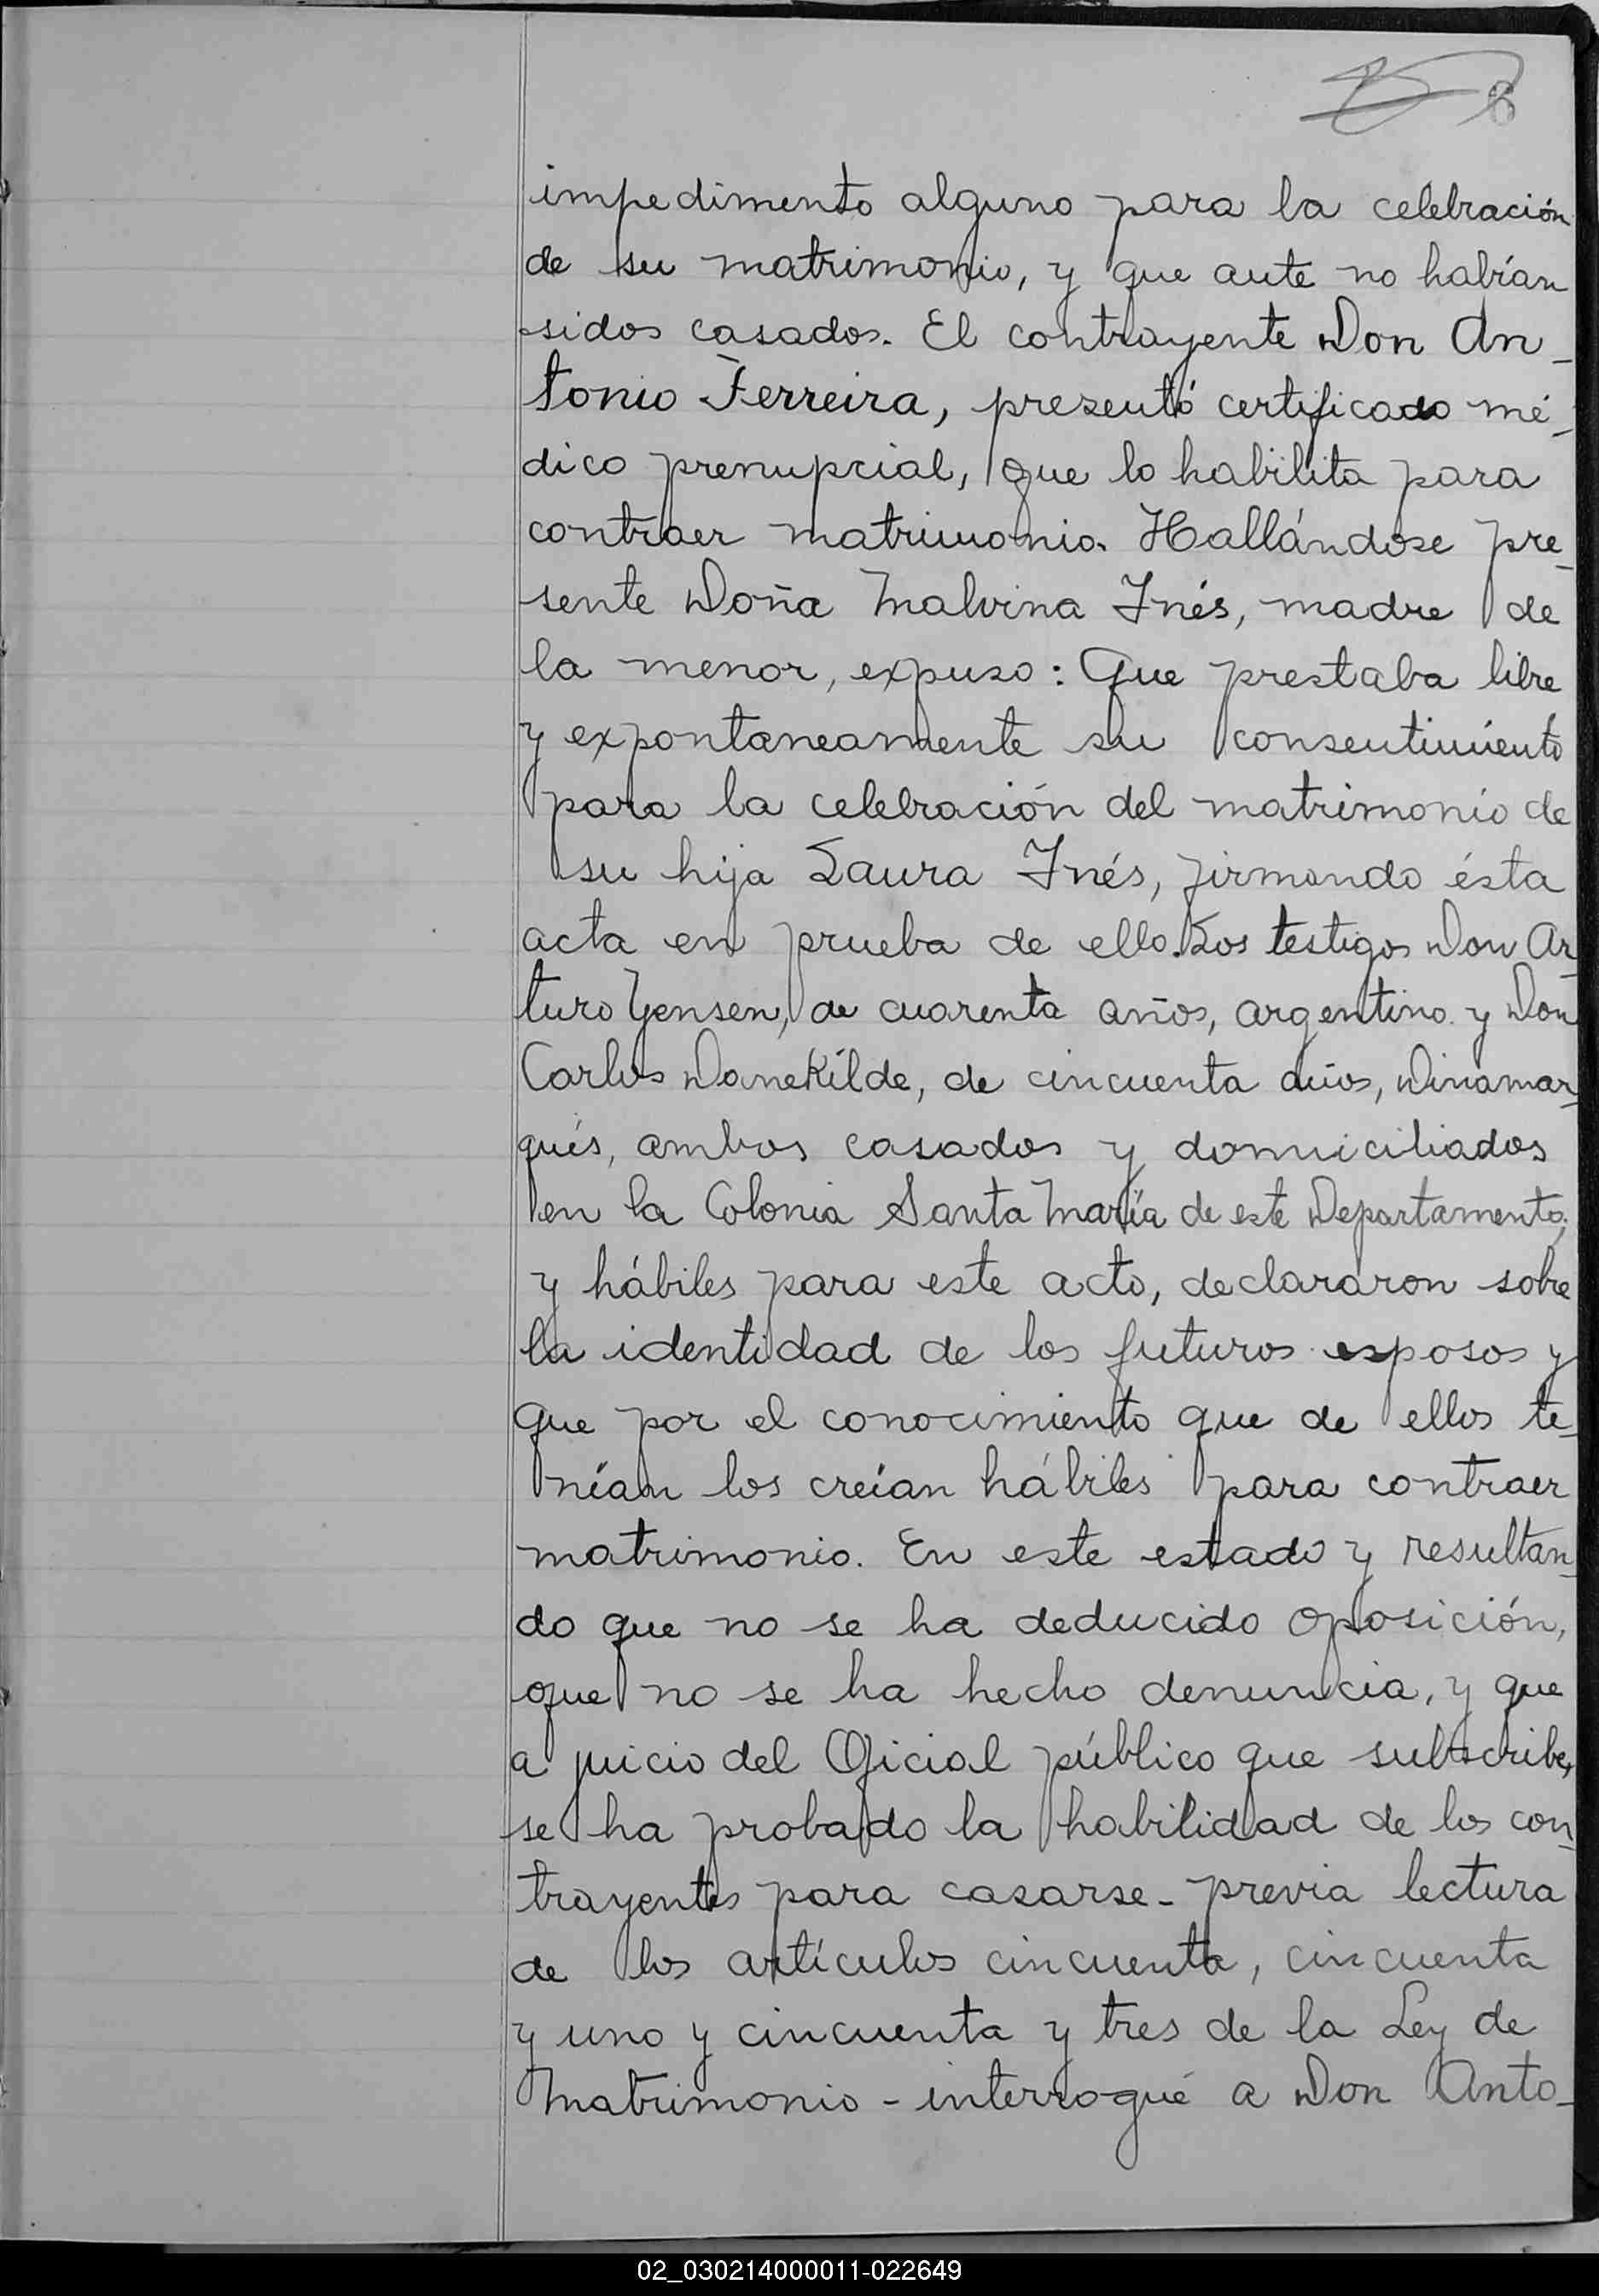 8
impedimento alguno para la celebración
de su matrimonio, y que ante no habían
sidos casados. El contrayente Don An_
tonio Ferreira, presentó certificado mé_
dico prenupcial, que lo habilita para
contraer matrimonio. Hallándose pre_
sente Doña Malvina Inés, madre de
la menor, expuso: Que prestaba libre
y expontaneamente su consentimiento
para la celebración del matrimonio de
su hija Laura Inés, firmando ésta
acta en prueba de ello. Los testigos Don Ar_
turo Yensen, de cuarenta años, argentino y Don
Carlos Danekilde, de cincuenta años, Dinamar_
qués, ambos casados y domiciliados
en la Colonia Santa María de este Departamento,
y hábiles para este acto, declararon sobre
la identidad de los futuros esposos y
que por el conocimiento que de ellos te_
nían los creían hábiles para contraer
matrimonio. En este estado y resultan_
do que no se ha deducido oposición,
que no se ha hecho denuncia, y que
a juicio del Oficial público que subscribe,
se ha probado la habilidad de los con_
trayentes para casarse - previa lectura
de los artículos cincuenta, cincuenta
y uno y cincuenta y tres de la Ley de
Matrimonio - interrogué a Don Anto_
02_030214000011-022649